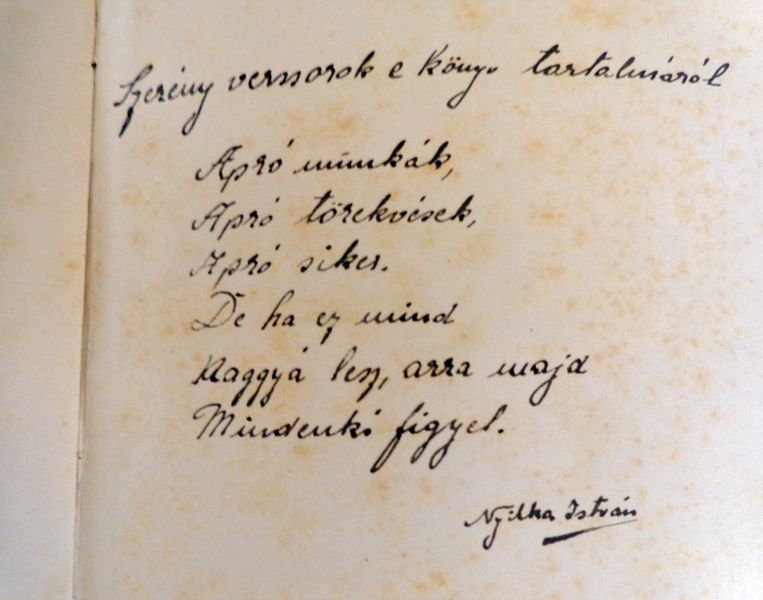 Szerény verssorok e könyv tartalmáról
Apró munkák,
Apró törekvések,
Apró siker.
De ha ez mind
Naggyá lesz, arra majd
Mindenki figyel.
Nyilka István